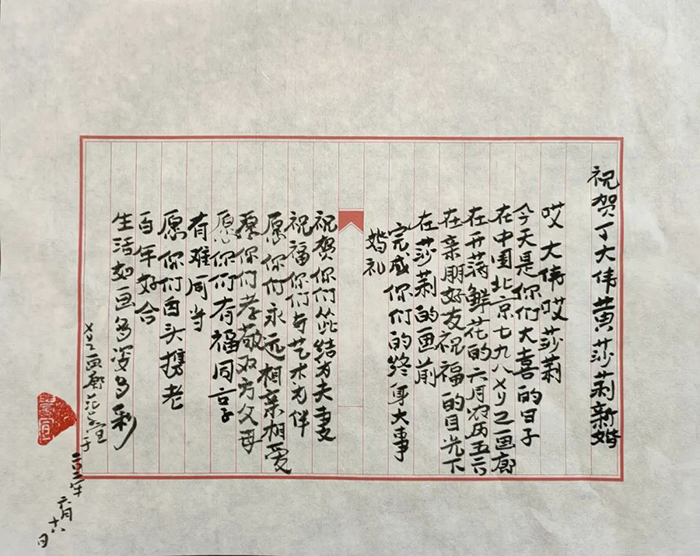 祝贺丁大伟黄莎莉新婚
哎 大伟哎莎莉
今天是你们大喜的日子
在中国北京七九八XYZ画廊
在开满鲜花的六月
在亲朋好友祝福的目光下
在莎莉的画前
完成你们的终身大事
婚礼
祝贺你们从此结为夫妻
祝福你们与艺术为伴
愿你们永远相亲相爱
愿你们孝敬双方父母
愿你们有福同享
有难同当
愿你们白头携老
百年好合
生活如画多姿多彩
XYZ画廊
六月十八日